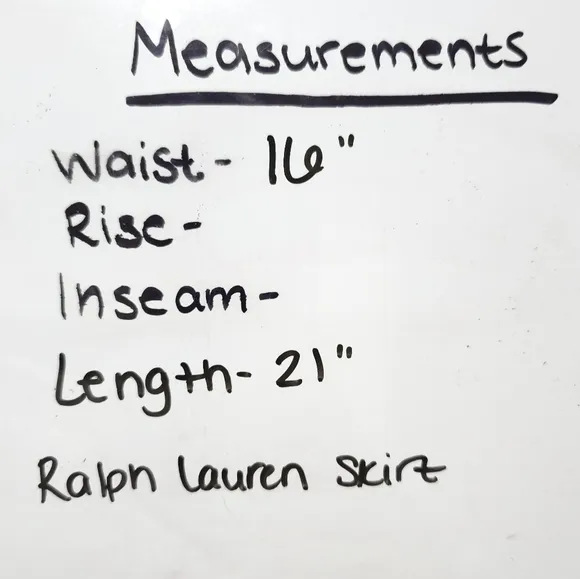 Measurements
Waist- 16"
Rise-
Inseam-
Length- 21"
Ralph Lauren Skirt